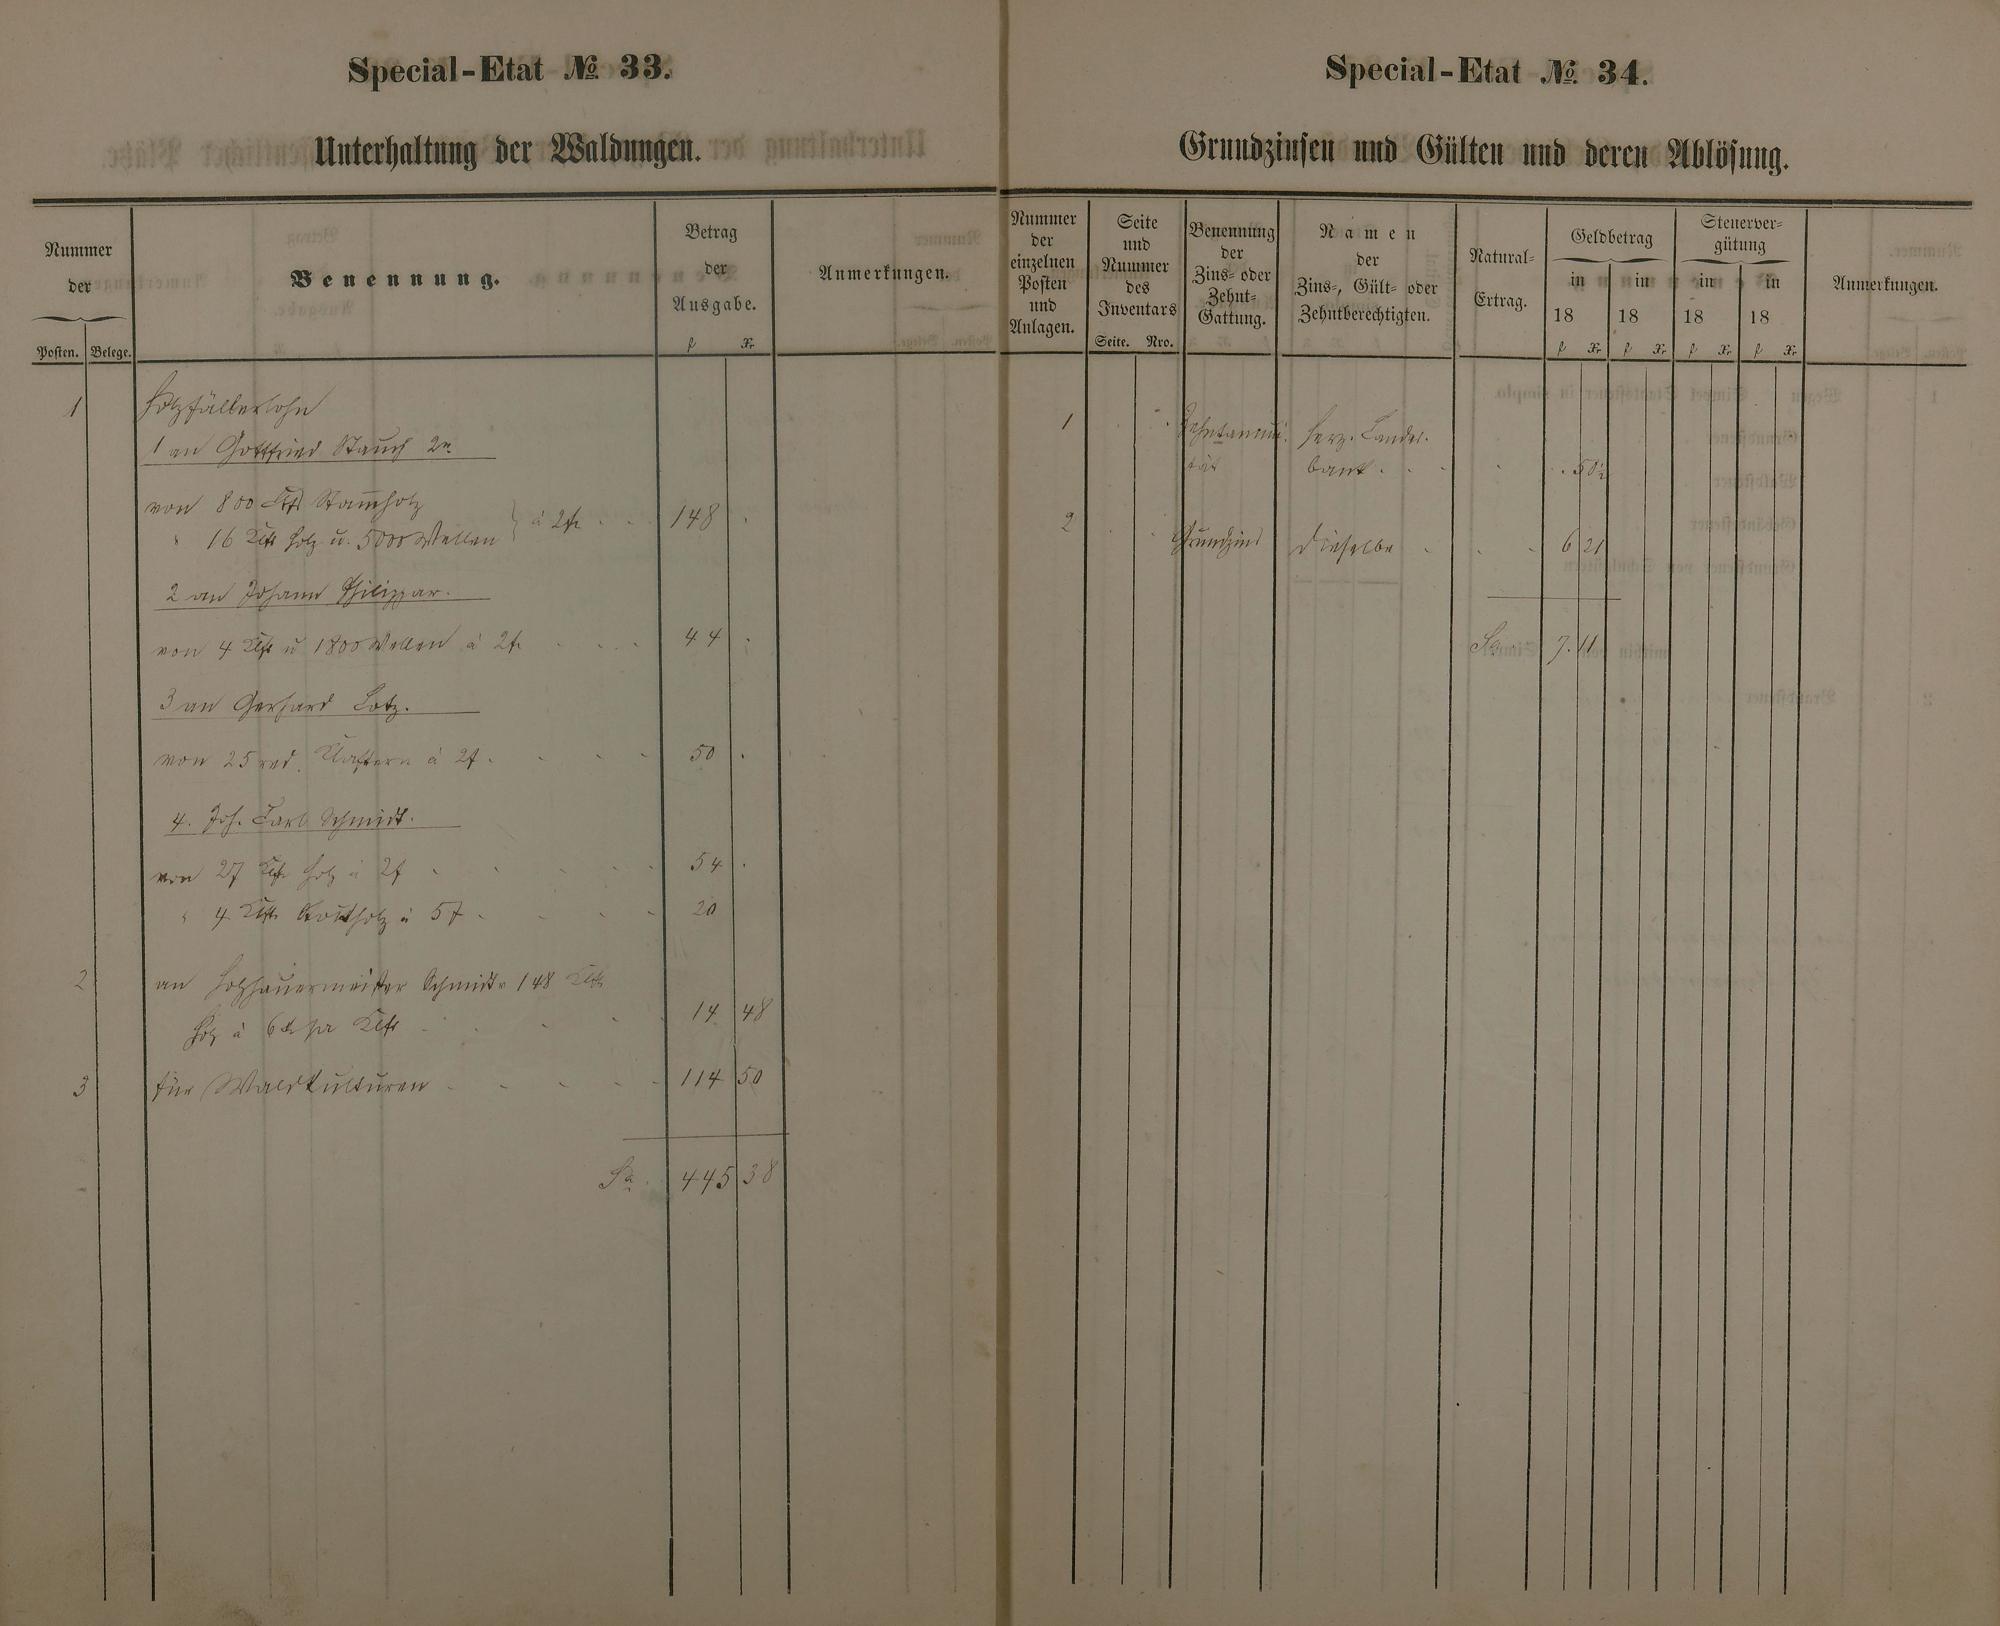 Special-Etat № 33.
Unterhaltung der Waldungen.
Nummer
der
Posten. Belege.
Benennung.
Betrag
der
Ausgabe.
f Xr
Anmerkungen.
1 Holzfällerlohn
1 an Gottfried Stauch 2r
von 800 Cfß Stammholz
" 16 Klftr Holz u. 5000 Wellen à 2f 148
2 an Johann Philippar.
von 4 Klftr u 1800 Wellen à 2f 44
3 an Gerhard Lotz.
von 25 red. Klaftern à 2f 50
4. Joh. Carl Schmidt.
von 27 Klftr Holz à 2f 54
" 4 Klftr à 5f 20
2 an Holzhauermeister Schmidt v 148 Klftr
Holz à 6x per Klftr 14 48
3 für Waldkulturen 114 50
Sa. 445 38
Special-Etat № 34.
Grundzinsen und Gülten und deren Ablösung.
Nummer
der
einzelnen
Posten
und
Anlagen.
Seite
und
Nummer
des
Inventars
Seite. Nro.
Benennung
der
Zins- oder
Zehnt-
Gattung.
Namen
der
Zins-, Gült- oder
Zehntberechtigten.
Natural-
Ertrag.
Geldbetrag
in in
18 18
f Xr f Xr
Steuerver-
gütung
in in
18 18
f Xr f Xr
Anmerkungen.
1 Zehntannui- Herz. Landes-
tät bank . 50½
2 Grundzins dieselbe 6 21
Sa 7. 11